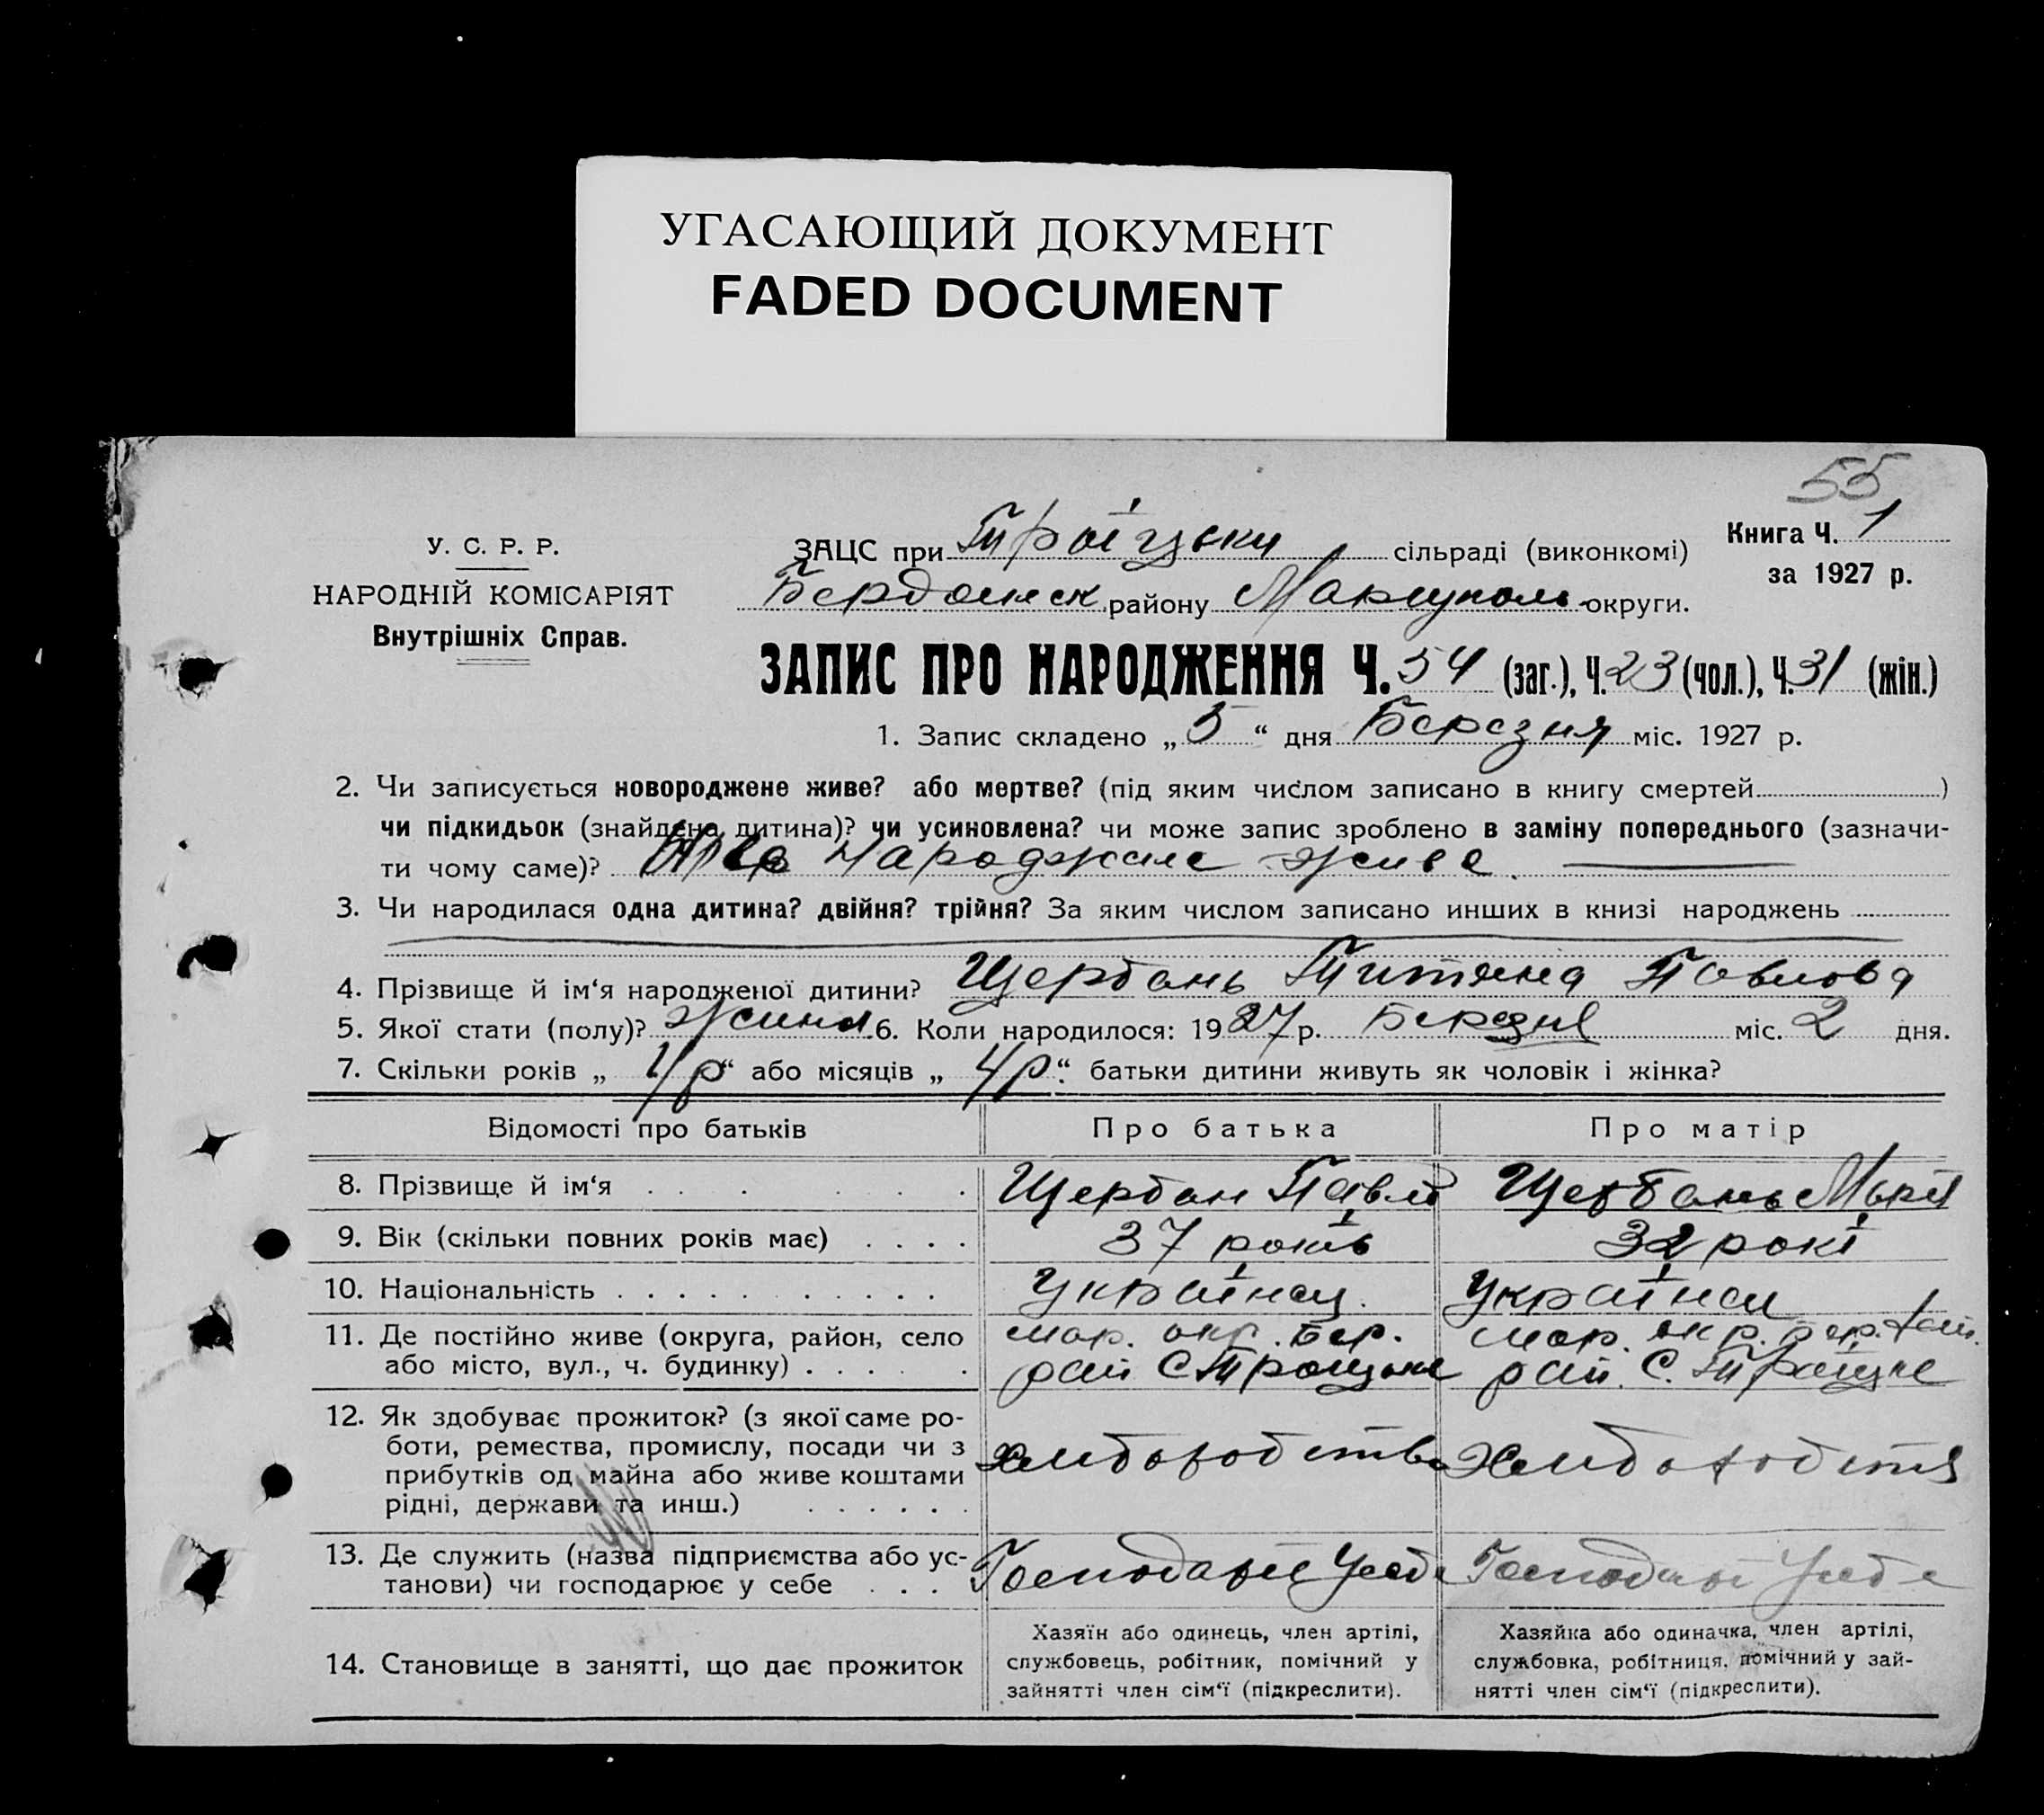 УГАСАЮЩИЙ ДОКУМЕНТ
FADED DOCUMENT
55
У. С. Р. Р.
НАРОДНІЙ КОМІСАРІЯТ
Внутрішніх Справ.
ЗАЦС при Троіцьки сільраді (виконкомі)
Бердянск району Мариуполь округи.
Книга Ч. 1
за 1927 р.
ЗАПИС ПРО НАРОДЖЕННЯ Ч. 54 (заг.), Ч. 23 (чол.), Ч. 31 (жін.)
1. Запис складено „ 5 “ дня Березня міс. 1927 р.
2. Чи записується новороджене живе? або мертве? (під яким числом записано в книгу смертей )
чи підкидьок (знайдена дитина)? чи усиновлена? чи може запис зроблено в заміну попереднього (зазначи-
ти чому саме)? живе.
3. Чи народилася одна дитина? двійня? трійня? За яким числом записано инших в книзі народжень
4. Прізвище й ім‘я народженої дитини? Щербань Титяна Павлова
5. Якої стати (полу)? 6. Коли народилося: 1927 р. міс. 2 дня.
7. Скільки років „ “ або місяців „ 4р “. батьки дитини живуть як чоловік і жінка?
Відомості про батьків Про батька Про матір
8. Прізвище й ім‘я Щербан Павло Щербань Марія
9. Вік (скільки повних років має) 37 років 32 рокі
10. Національність Українец Українци
11. Де постійно живе (округа, район, село мар. окр. Бер. мар. окр.
або місто, вул., ч. будинку) рай С Троицьке рай. С. Троїцке
12. Як здобуває прожиток? (з якої саме ро-
боти, ремества, промислу, посади чи з
прибутків од майна або живе коштами хлиборобство
рідні, держави та инш.)
13. Де служить (назва підприємства або ус-
танови) чи господарює у себе Господарі Усебе Господарі Усебе
14. Становище в занятті, що дає прожиток
Хазяїн або одинець, член артілі,
службовець, робітник, помічний у
зайнятті член сім‘ї (підкреслити).
Хазяйка або одиначка, член артілі,
службовка, робітниця, помічний у зай-
нятті член сім‘ї (підкреслити).